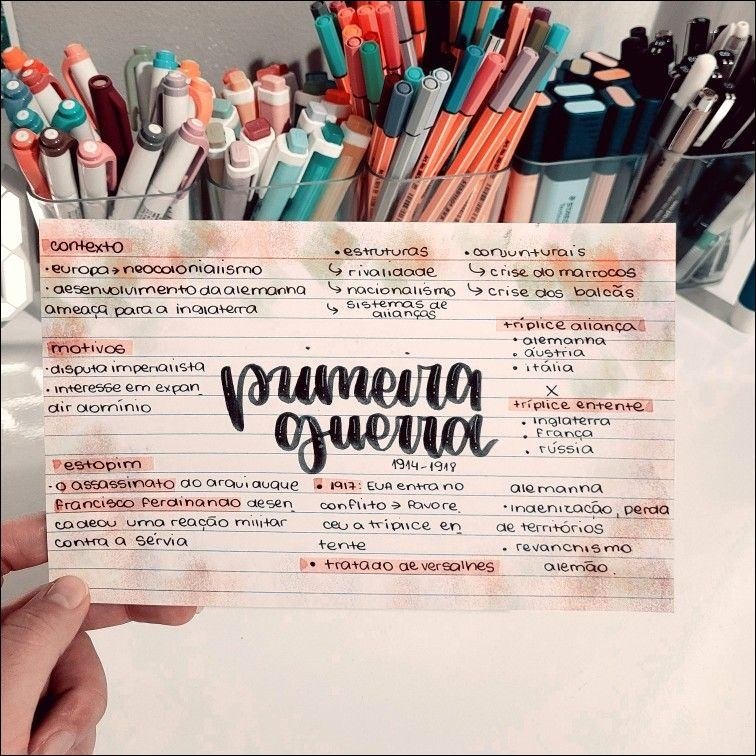 contexto
• europa → neocolonialismo
• desenvolvimento da alemanha
ameaça para a inglaterra
• estruturas
↳ rivalidade
↳ nacionalismo
↳ sistemas de
alianças
• conjunturais
↳ crise do marrocos
↳ crise dos balcãs
motivos
• disputa imperialista
• interesse em expan
dir domínio
primeira
guerra
1914-1918
tríplice aliança
• alemanha
• áustria
• itália
X
tríplice entente
• inglaterra
• frança
• rússia
estopim
• o assassinato do arquiduque
francisco ferdinando desen
cadeou uma reação militar
contra a sérvia
• 1917: EUA entra no
conflito → favore
ceu a tríplice en
tente
• tratado de versalhes
alemanha
• indenização, perda
de territórios
• revanchismo
alemão